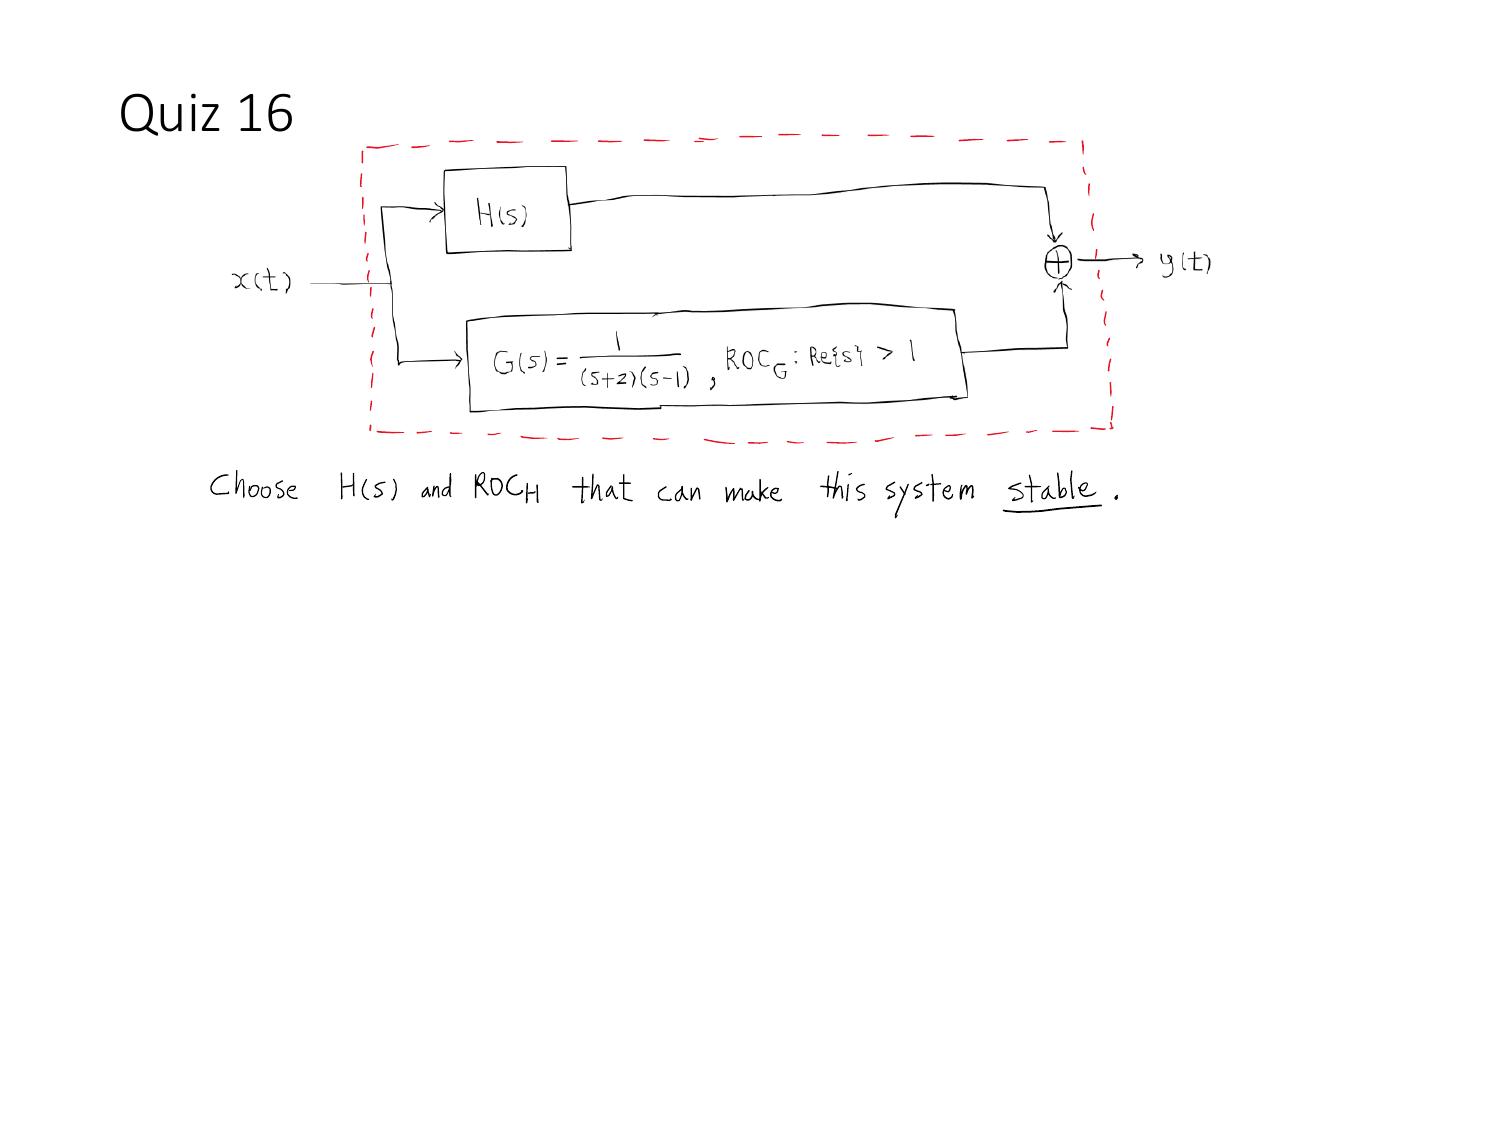 Quiz 16
H(s)
x(t)
y(t)
G(s) = 1/((s+2)(s-1)), ROC_G : Re{s} > 1
Choose H(s) and ROC_H that can make this system stable.